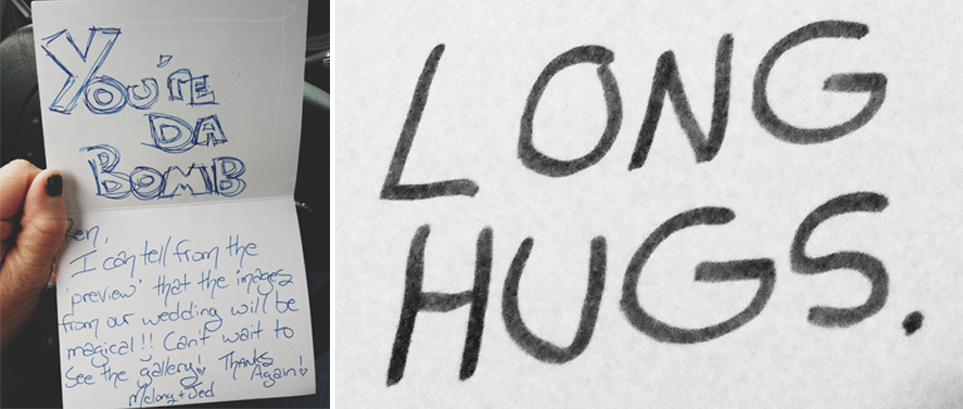 You're
DA
BOMB
Ren,
I can tell from the
'preview' that the images
from our wedding will be
magical!! Can't wait to
see the gallery! Thanks
Again!
+ Jed
LONG
HUGS.